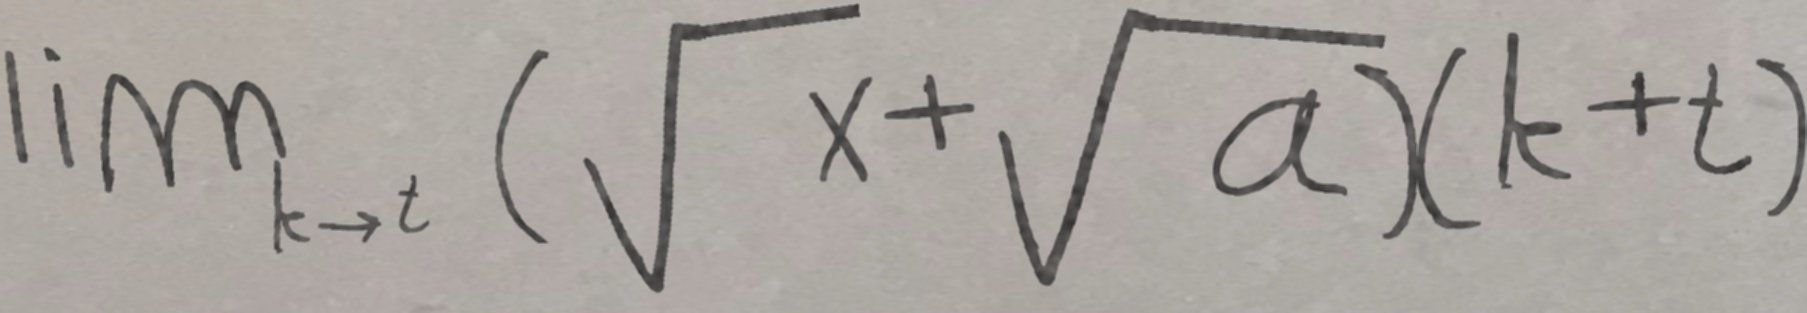 lim_{k→t} (√x + √a)(k+t)